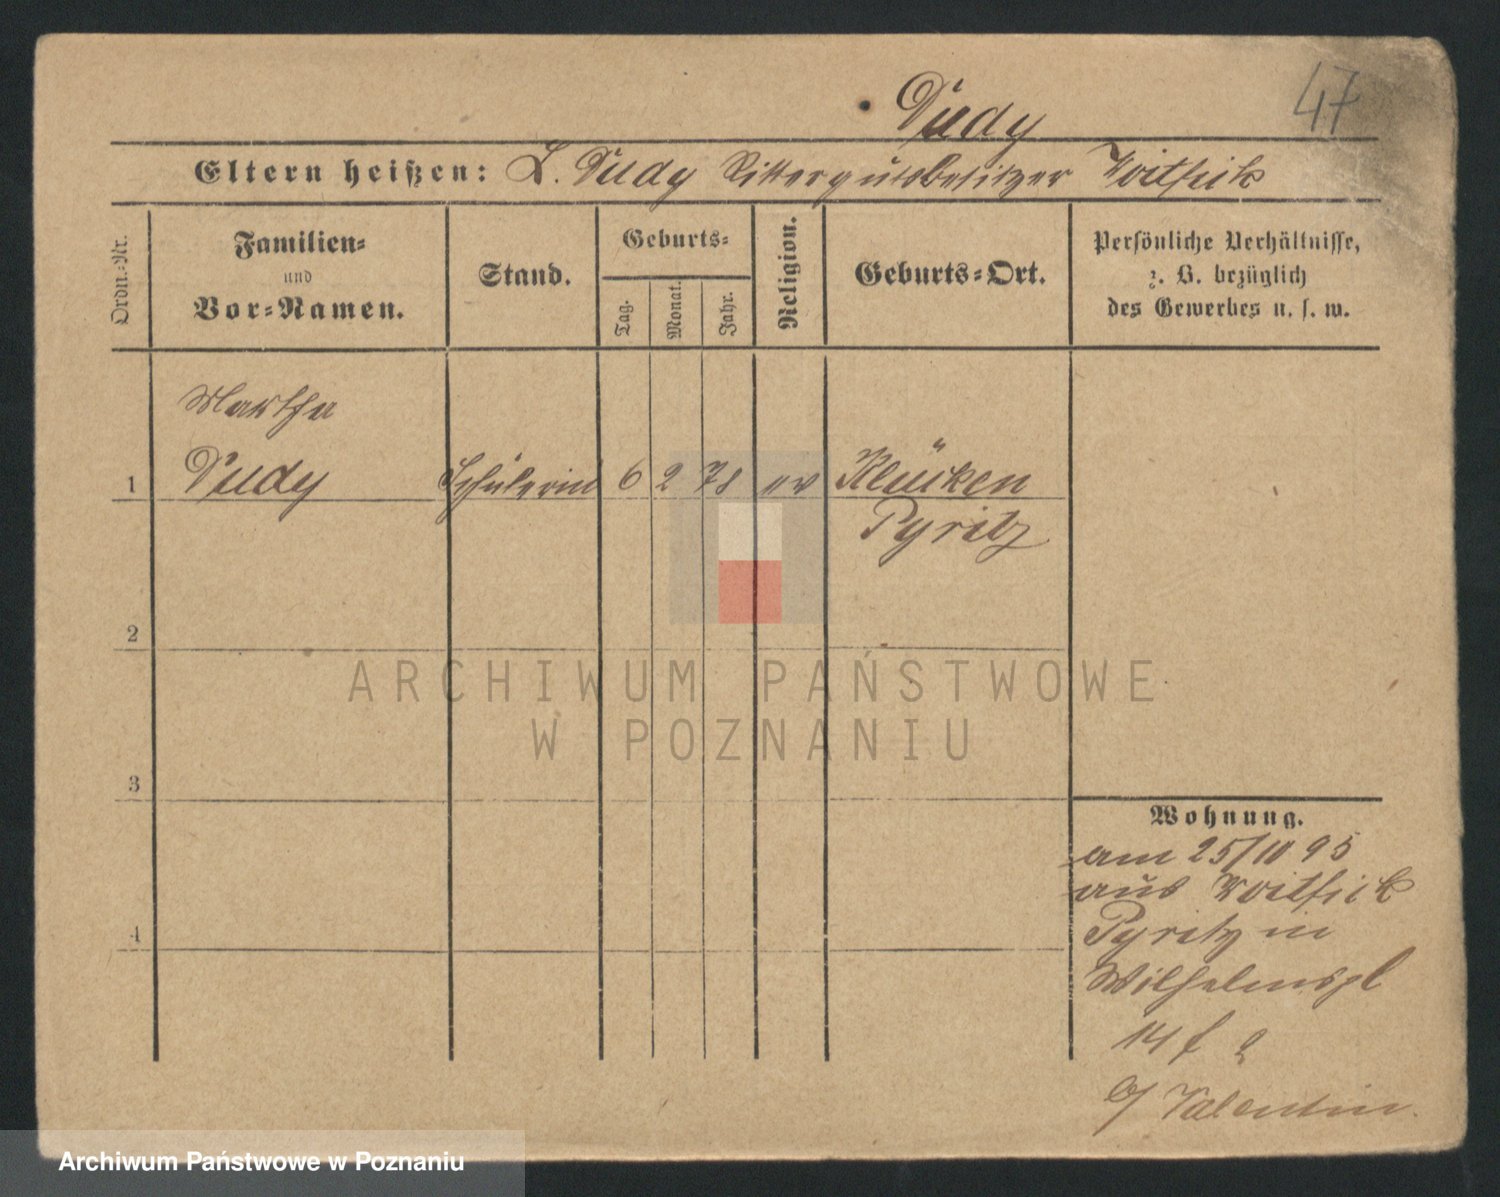 47
Dudy
Eltern heißen: L. Dudy Rittergutsbesitzer Woitfick
Ordn.-Nr.
Familien-
und
Vor-Namen.
Stand.
Geburts-
Tag.
Monat.
Jahr.
Religion.
Geburts-Ort.
Persönliche Verhältnisse,
z. B. bezüglich
des Gewerbes u. s. w.
Martha
1 Dudy Schülerin 6 2 78 ev Klücken
Pyritz
2
3
4
Wohnung.
am 25/10 95
aus Woitfick
Pyritz in
Wilhelmspl
14 f 2
b/ Valentin
ARCHIWUM PAŃSTWOWE
W POZNANIU
Archiwum Państwowe w Poznaniu